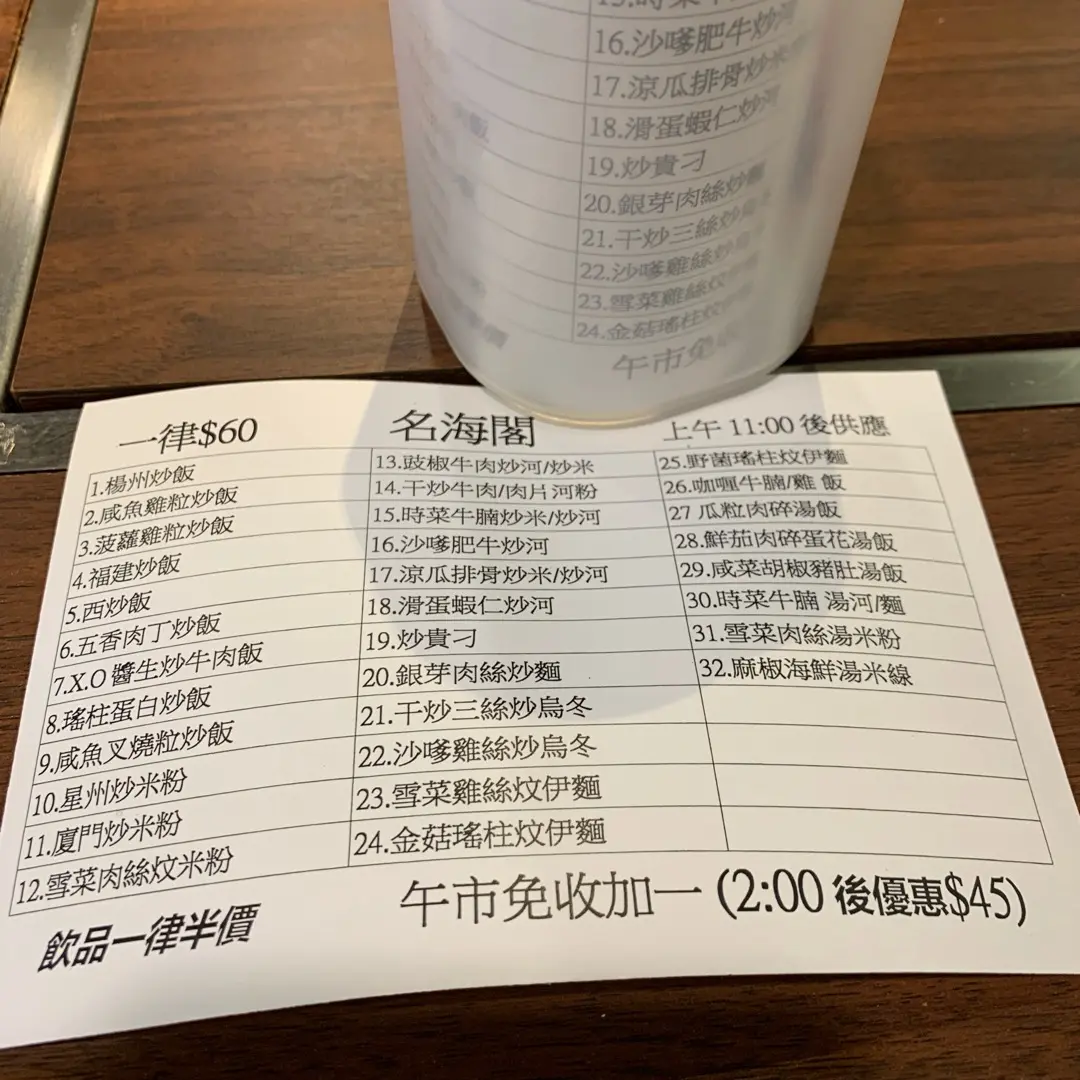 16.沙嗲肥牛炒河
17.涼瓜排骨炒米
18.滑蛋蝦仁炒河
19.炒貴刁
20.銀芽肉絲炒麵
21.干炒三絲炒烏
22.沙嗲雞絲炒烏
23.雪菜雞絲炆
24.金菇瑤柱炆
午市免
一律$60
名海閣
上午 11:00 後供應
1.楊州炒飯
2.咸魚雞粒炒飯
3.菠蘿雞粒炒飯
4.福建炒飯
5.西炒飯
6.五香肉丁炒飯
7.X.O 醬生炒牛肉飯
8.瑤柱蛋白炒飯
9.咸魚叉燒粒炒飯
10.星州炒米粉
11.廈門炒米粉
12.雪菜肉絲炆米粉
13.豉椒牛肉炒河/炒米
14.干炒牛肉/肉片河粉
15.時菜牛腩炒米/炒河
16.沙嗲肥牛炒河
17.涼瓜排骨炒米/炒河
18.滑蛋蝦仁炒河
19.炒貴刁
20.銀芽肉絲炒麵
21.干炒三絲炒烏冬
22.沙嗲雞絲炒烏冬
23.雪菜雞絲炆伊麵
24.金菇瑤柱炆伊麵
25.野菌瑤柱炆伊麵
26.咖喱牛腩/雞 飯
27 瓜粒肉碎湯飯
28.鮮茄肉碎蛋花湯飯
29.咸菜胡椒豬肚湯飯
30.時菜牛腩 湯河/麵
31.雪菜肉絲湯米粉
32.麻椒海鮮湯米線
午市免收加一 (2:00 後優惠$45)
飲品一律半價